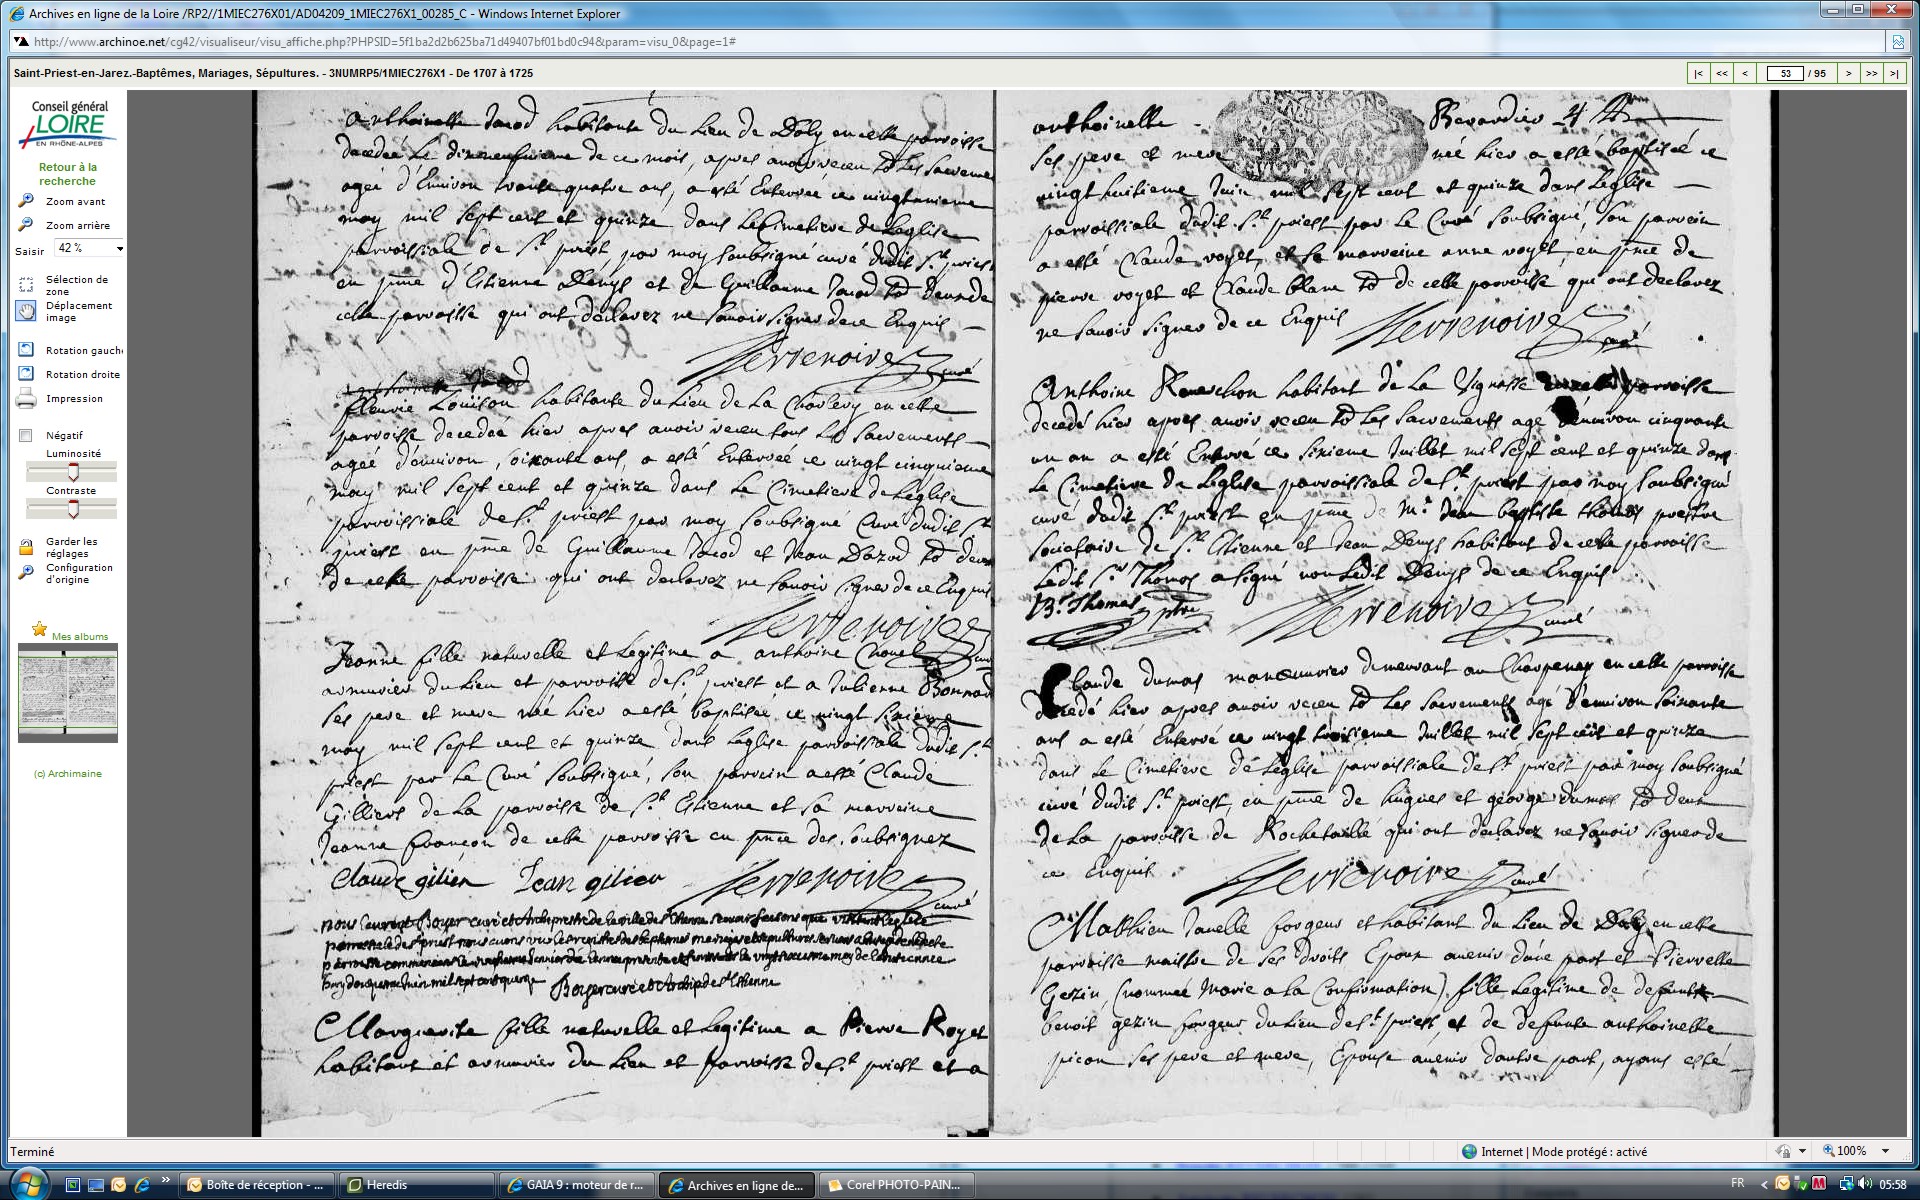 Archives en ligne de la Loire /RP2//1MIEC276X01/AD04209_1MIEC276X1_00285_C - Windows Internet Explorer
http://www.archinoe.net/cg42/visualiseur/visu_affiche.php?PHPSID=5f1ba2d2b625ba71d49407bf01bd0c94&param=visu_0&page=1#
Saint-Priest-en-Jarez.-Baptêmes, Mariages, Sépultures. - 3NUMRP5/1MIEC276X1 - De 1707 à 1725
|< << < 53 / 95 > >> >|
Conseil général
LOIRE
EN RHÔNE-ALPES
Retour à la
recherche
Zoom avant
Zoom arrière
Saisir 42 %
Sélection de
zone
Déplacement
image
Rotation gauch
Rotation droite
Impression
Négatif
Luminosité
Contraste
Garder les
réglages
Configuration
d'origine
Mes albums
(c) Archimaine
Anthoinette Jacod habitante du lieu de Doly en cette parroisse
decedeé le dixneufvieme de ce mois, apres avoir receu tt les sacreme
ageé d'Environ trante quatre ans, a esté Enterreé ce vingtunieme
may mil sept cent et quinze dans le Cimetiere de Leglise
parroissiale de St priest par moy soubsigné curé dudit St priest
en pnce d'Estienne Denys et de Guillaume Jacod tt deux de
cette parroisse qui ont declarez ne savoir signer de ce Enquis
Terrenoire curé
fleurie Louison habitante du lieu de La Charlery en cette
parroisse decedeé hier apres avoir receu tous les sacrements
ageé d'environ soixante ans, a esté Enterreé ce vingt cinquieme
may mil sept cent et quinze dans Le Cimetiere de Leglise
parroissiale de St priest par moy soubsigné Curé dudit St
priest en pnce de Guillaume Jacod et Jean tt deux
de cette parroisse qui ont declarez ne savoir signer de ce Enquis
Terrenoire curé
Jeanne fille naturelle et Legitime a anthoine
armurier du lieu et parroisse de St priest et a Julienne Bonnard
ses pere et mere neé hier a esté baptiseé ce vingt sixieme
may mil sept cent et quinze dans Leglise parroissiale dudit St
priest par Le Curé soubsigné, son parrein a esté Claude
Gilliers de La parroisse de St Estienne et sa marreine
Jeanne françon de cette parroisse en pnce des soubsignez
Claude gilier Jean gilier Terrenoire curé
nous Laurent Boyer curé et Archiprestre de la ville de St Estienne
Boyer curé et Archip de St Estienne
Marguerite fille naturelle et Legitime a Pierre Royet
habitant et armurier du Lieu et parroisse de St priest et a
anthoinette Berardier
ses pere et mere neé hier a esté baptiseé ce
vingt huitieme Juin mil sept cent et quinze dans Leglise
parroissiale dudit St priest par Le Curé soubsigné, son parrein
a esté Claude royet, et sa marreine anne royet, en pnce de
pierre royet et Claude blanc tt de cette parroisse qui ont declarez
ne savoir signer de ce Enquis Terrenoire curé
Anthoine habitant de La Vignasse parroisse
decedé hier apres avoir receu tt Les sacrements agé d'environ cinquante
un an a esté Enterré ce sixieme Juillet mil sept cent et quinze dans
Le Cimetiere de Leglise parroissiale de St priest par moy soubsigné
curé dudit St priest en pnce de Mr Jean baptiste thomas prestre
societaire de St Estienne et Jean Denys habitant de cette parroisse
Ledit Sr Thomas a signé non Ledit Denys de ce Enquis
B. Thomas ptre Terrenoire curé
Claude dumas manouvrier demeurant au Charpenay en cette parroisse
decedé hier apres avoir receu tt Les sacrements agé d'environ soixante
ans a esté Enterré ce vingt troisieme Juillet mil sept cent et quinze
dans Le Cimetiere de Leglise parroissiale de St priest par moy soubsigné
curé dudit St priest, en pnce de hugues et george dumas tt deux
de La parroisse de Rochetaillé qui ont declarez ne savoir signer de
ce Enquis Terrenoire curé
Matthieu forgeur et habitant du Lieu de Doly en cette
parroisse maistre de ses droits Epoux avenir d'une part et Pierrette
Gezin, (nommeé Marie a La Confirmation), fille Legitime de defunt
benoit gezin forgeur du Lieu de St priest, et de defunte anthoinette
picon ses pere et mere, Epouse avenir d'autre part, ayans esté
Terminé
Internet | Mode protégé : activé
100%
Boîte de réception - ...
Heredis
GAIA 9 : moteur de r...
Archives en ligne de...
Corel PHOTO-PAIN...
FR
05:58